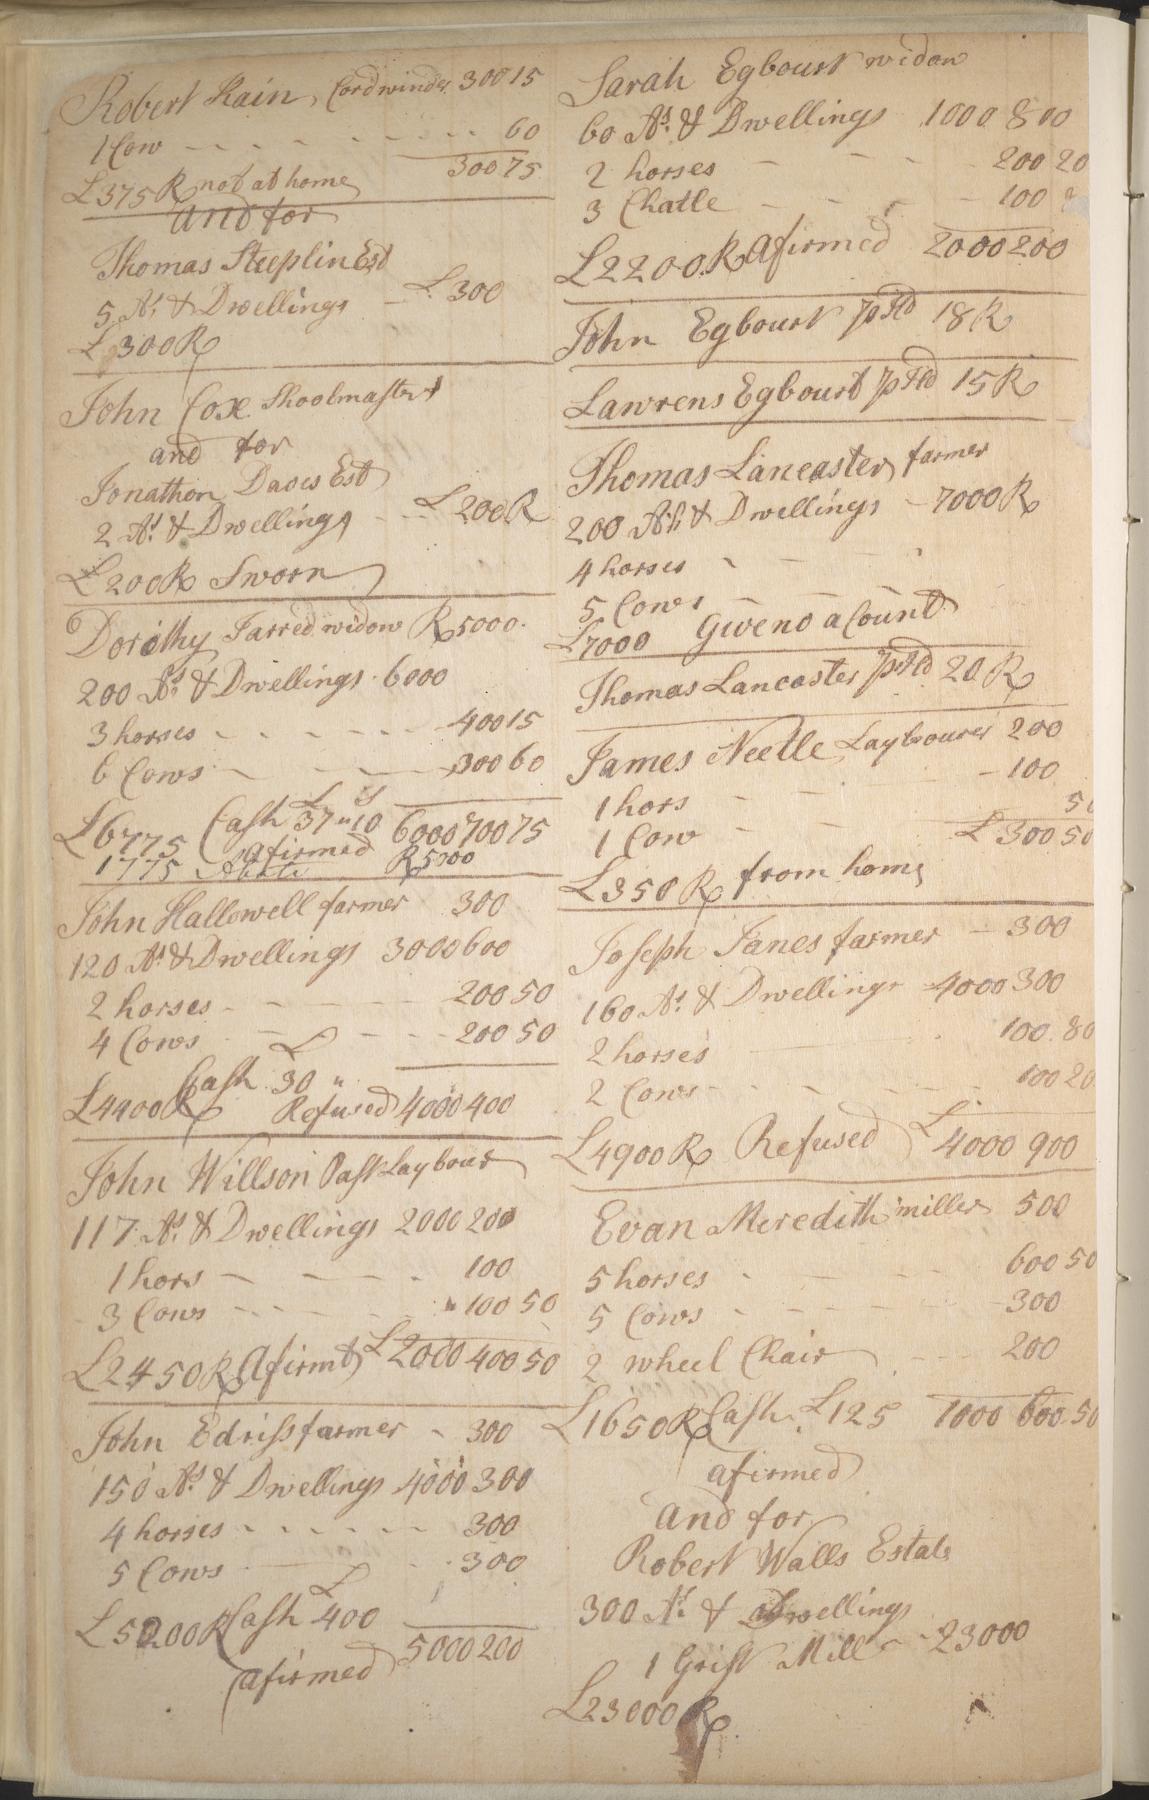 Robert Kain, Cordwinder 300 15
1 Cow - - - - - - 60
300 75
£375 R not at home
and for
Thomas Steeplin Est
5 As & Dwellings - £300
£300 R
John Coxe Shoolmaster
and for
Jonathon Daves Est
2 As & Dwellings - - £200 R
£200 R Sworn
Dorothy Jarred widow R 5000
200 As & Dwellings 6000
3 horses - - - - - 400 15
6 Cows - - - 300 60
£ s
£6775 Cash 37 " 10 6000 700 75
afirmed
1775 Abate R 5000
John Hallowell farmer 300
120 As & Dwellings 3000 600
2 horses - - - - 200 50
4 Cows - - - - 200 50
£
Cash 30 "
£4400 R Refused 4000 400
John Willson Past Laybour
117 As & Dwellings 2000 200
1 hors - - - - 100
3 Cows - - - - " 100 50
£2450 R Afirmt £2000 400 50
John Edriss farmer - 300
150 As & Dwellings 4000 300
4 horses - - - - - 300
5 Cows - - 300
£
£5200 R Cash 400
5000 200
afirmed
Sarah Egbourt widow
60 As & Dwellings 1000 800
2 horses - - - 200 20
3 Chatle - - - - 100
£2200 R Afirmed 2000 200
John Egbourt p Hd 18 R
Lawrens Egbourt p Hd 15 R
Thomas Lancaster farmer
200 As & Dwellings - 7000 R
4 horses - -
5 Cows - - -
£7000 Giveno a Count
Thomas Lancaster p Hd 20 R
James Neetle Laybourer 200
1 hors - - - 100
1 Cow - - 50
£300 50
£350 R from home
Joseph Janes farmer - 300
160 As & Dwellings 4000 300
2 horses 100 80
2 Cows - - - - 100 20
£4900 R Refused £4000 900
Evan Meredith miller 500
5 horses - - - 600 50
5 Cows - - - - 300
2 wheel Chair - - 200
£1650 R Cash £125 1000 600 50
afirmed
and for
Robert Walls Estate
300 As & Dwellings
1 Grist Mill - - 23000
£23000 R